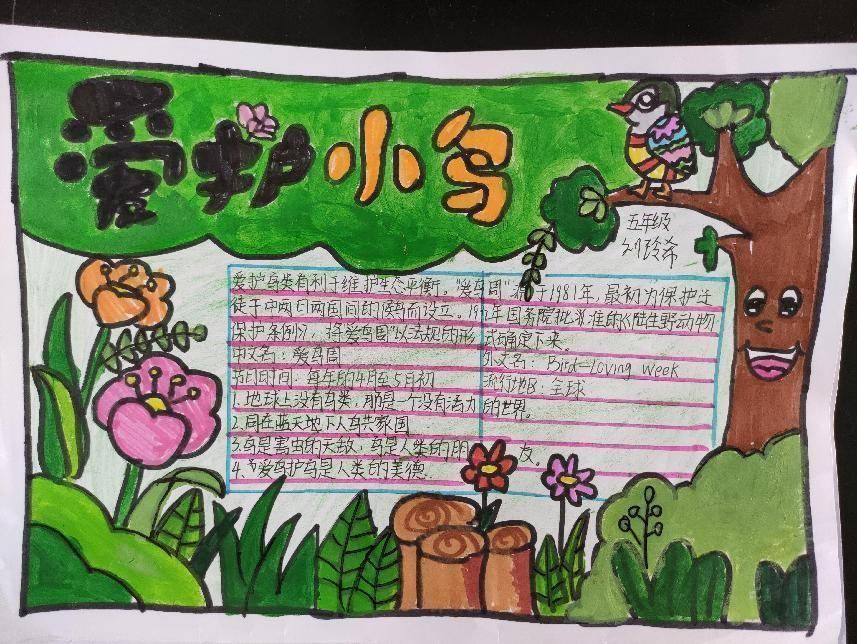 爱护小鸟
五年级
刘玲希
爱护鸟类有利于维护生态平衡。"爱鸟周"源于1981年,最初为保护迁
徙于中日两国间的候鸟而设立。19 年国务院批准的《陆生野动物
保护条例》,将爱鸟周"以法规的形式确定下来。
中文名:爱鸟周 外文名:Bird-Loving Week
节日时间:每年的4月至5月初 流行地区:全球
1.地球上没有鸟类,那是一个没有活力的世界。
2.同在蓝天地下人鸟共家国
3.鸟是害虫的天敌,鸟是人类的朋友。
4.爱鸟护鸟是人类的美德.